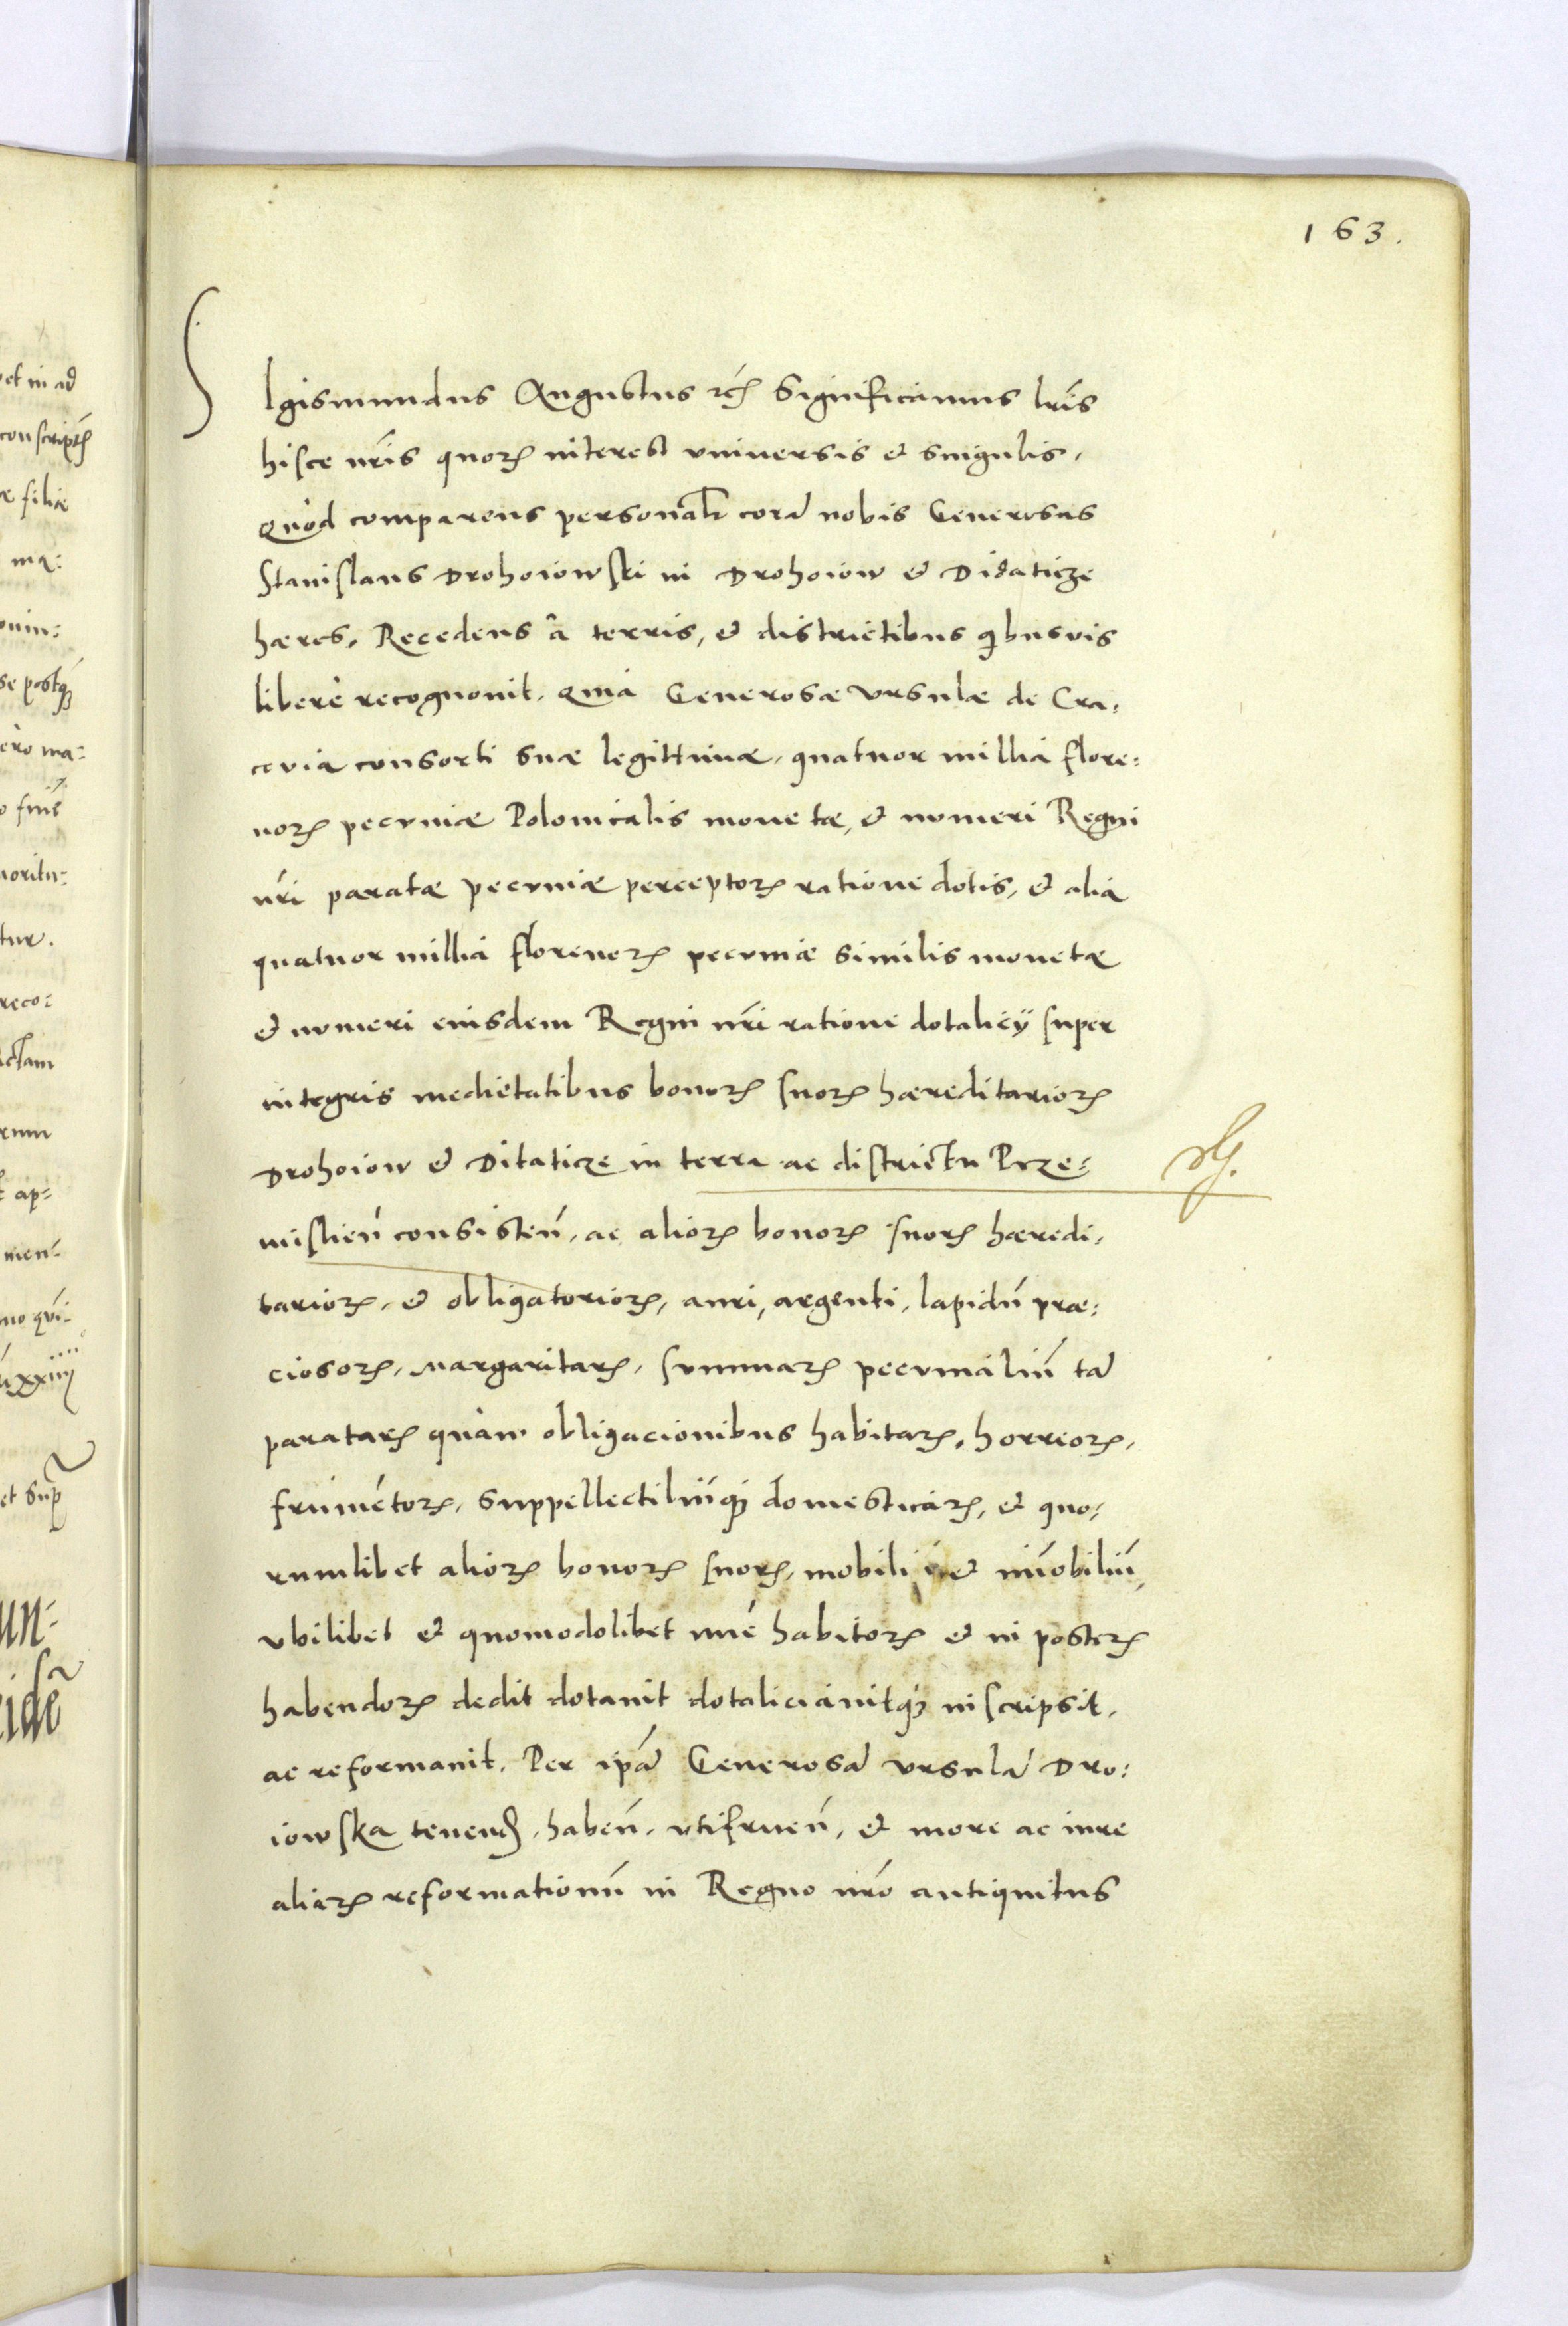 163.
SIgismundus Augustus etc̃ Significamus lr̃is
hisce nr̃is quorꝝ interest vniuersis et singulis,
quòd comparens personalr̃ corã nobis Generosus
Stanislaus Drohoiowski in Drohoiow et Didaticze
hæres, Recedens â terris, et districtibus q̃busuis
liberè recognouit. quia Generosæ Vrsulæ de Cra-
couia consorti suæ legittimæ, quatuor millia flore-
norꝝ pecuniæ Polonicalis monetæ, et numeri Regni
nr̃i paratæ pecuniæ perceptorꝝ ratione dotis, et alia
quatuor millia florenorꝝ pecuniæ similis monetæ
et numeri eiusdem Regni nr̃i ratione dotalicÿ super
integris medietatibus bonorꝝ suorꝝ hæreditariorꝝ
Drohoiow et Ditaticze in terra ac districtu Prze-
mislien̄ consisten̄, ac aliorꝝ bonorꝝ suorꝝ hæredi-
tariorꝝ, et obligatoriorꝝ, auri, argenti, lapidũ præ-
ciosorꝝ, Margaritarꝝ, summarꝝ pecunialiũ tã
paratarꝝ quàm obligacionibus habitarꝝ, horreorꝝ,
frumẽtorꝝ, suppellectiliũq; domesticarꝝ, et quo-
rumlibet aliorꝝ bonorꝝ suorꝝ, mobiliũ et im̃obiliũ
vbilibet et quomodolibet nũc habitorꝝ et in posterꝝ
habendorꝝ dedit dotauit dotaliciauitq; inscripsit,
ac reformauit. Per ip̃ã Generosã Vrsulã Dro-
iowska tenend̃, haben̄, vtifruen̄, et more ac iure
aliarꝝ reformationũ in Regno nr̃o antiquitus